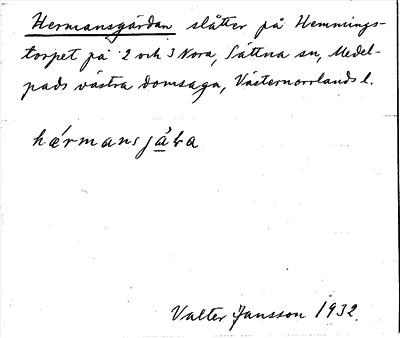 Hermansgårdan slåtter på Hemmings-
torpet på 2 och 3 Nora, Sättna sn, Medel-
pads västra domsaga, Västernorrlands l.
hærmansjåka
Valter Jansson 1932.